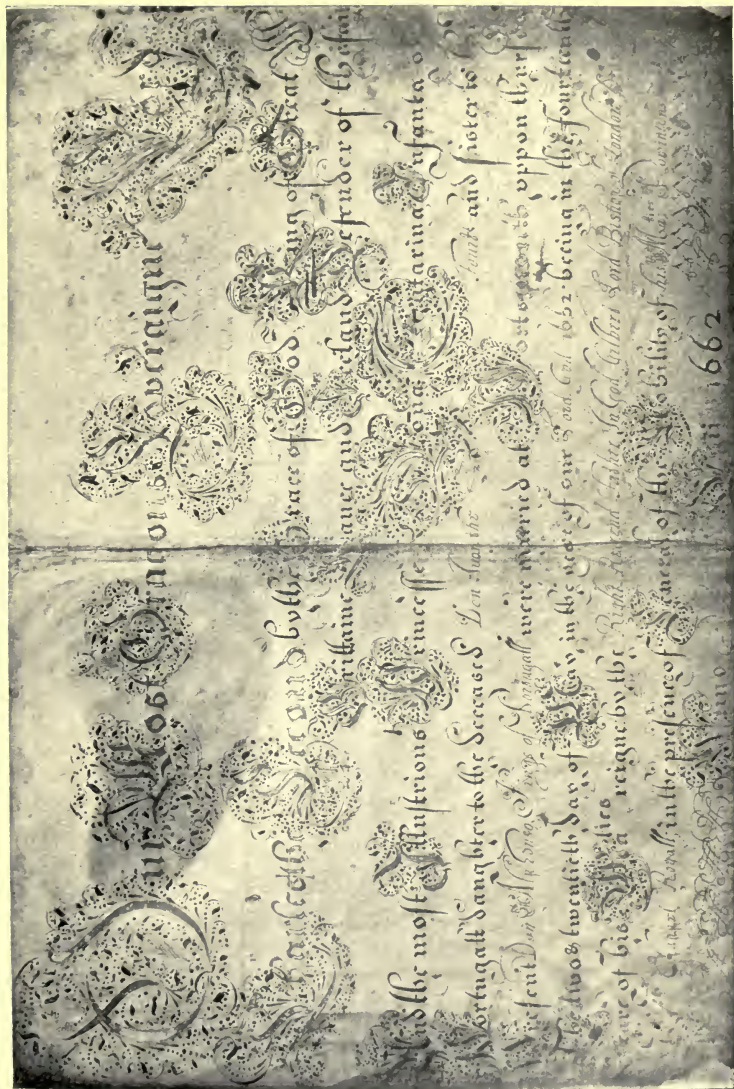 Our Most Gracious Soveraigne Lord
Charles the Second by the Grace of God King of Great
Brittaine France and Ireland Defender of the fait
And the most Illustrious Princesse Dona Catarina Infanta of
Portugall daughter to the deceased Don Juan the Fourth and sister to
present Don Alphonso King of Portugall were married at Portsmouth uppon thurs
The two & twentieth day of May in the yeare of our Lord God 1662 beeing in the fourteenth
yeare of his Maties reigne by the Right Reverend Father in God Gilbert Lord Bishop of London
Chappel Royall in the presence of Severall of the Nobility of his Maties
Anno 1662